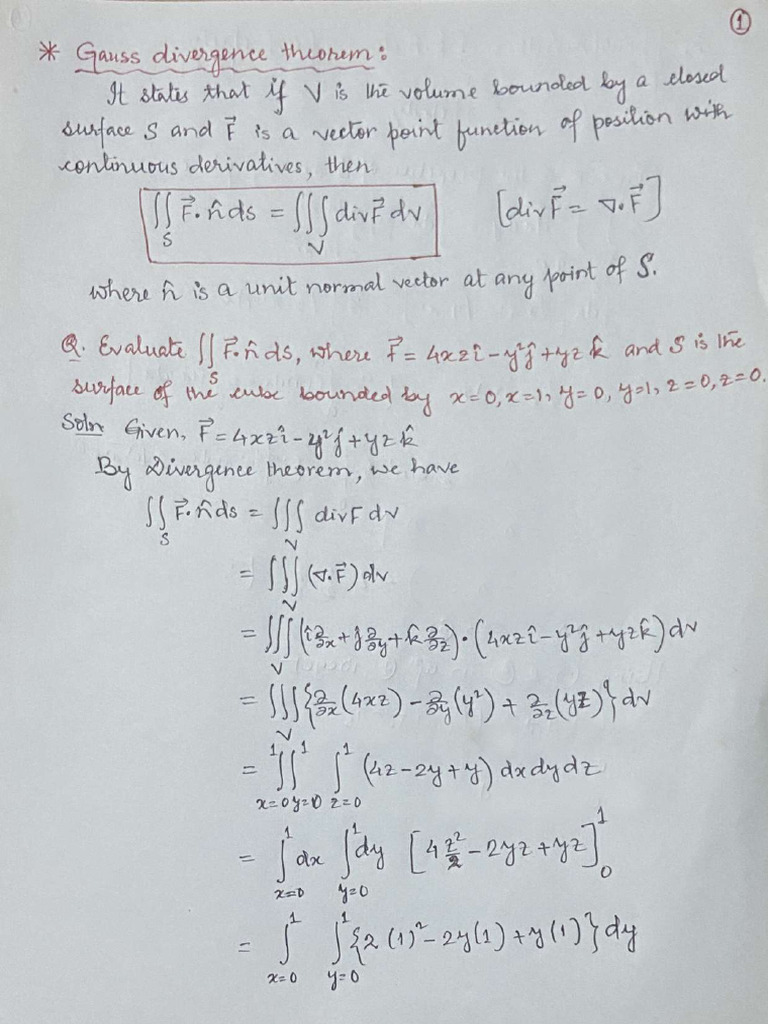 ①
* Gauss divergence theorem:
It states that if V is the volume bounded by a closed
surface S and F⃗ is a vector point function of position with
continuous derivatives, then
∬_S F⃗·n̂ ds = ∭_V div F⃗ dv [div F⃗ = ∇·F⃗]
where n̂ is a unit normal vector at any point of S.
Q. Evaluate ∬_S F⃗·n̂ ds, where F⃗ = 4xz î - y² ĵ + yz k̂ and S is the
surface of the cube bounded by x=0, x=1, y=0, y=1, z=0, z=0.
Soln Given, F⃗ = 4xz î - y² ĵ + yz k̂
By Divergence theorem, we have
∬_S F⃗·n̂ ds = ∭_V div F dv
= ∭_V (∇·F⃗) dv
= ∭_V (î ∂/∂x + ĵ ∂/∂y + k̂ ∂/∂z)·(4xz î - y² ĵ + yz k̂) dv
= ∭_V {∂/∂x (4xz) - ∂/∂y (y²) + ∂/∂z (yz)} dv
= ∫_{x=0}^{1} ∫_{y=0}^{1} ∫_{z=0}^{1} (4z - 2y + y) dx dy dz
= ∫_{x=0}^{1} dx ∫_{y=0}^{1} dy [4 z²/2 - 2yz + yz]_0^1
= ∫_{x=0}^{1} ∫_{y=0}^{1} {2(1)² - 2y(1) + y(1)} dy